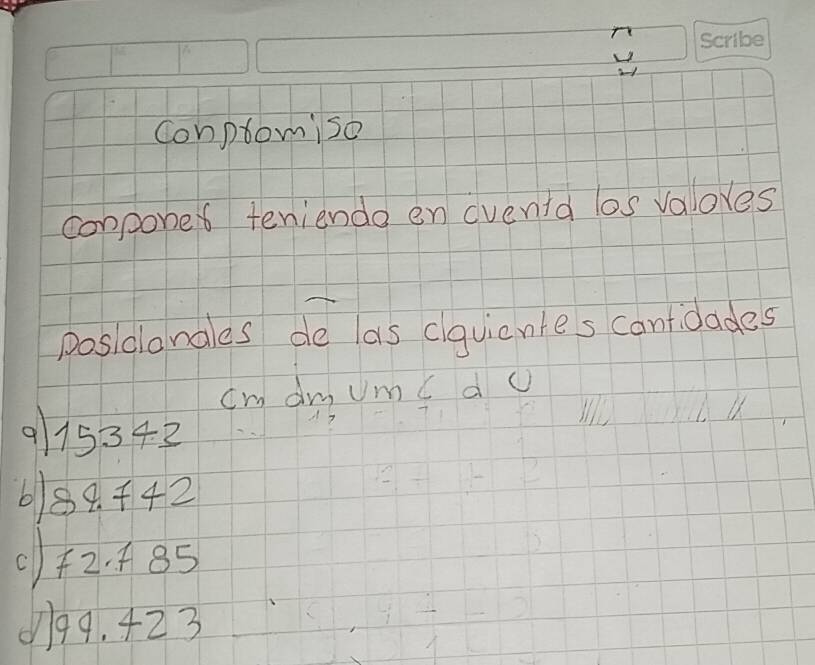 Scribe
conpromiso
conponer teniendo en cuenta los valores
posicionales de las ciguientes cantidades
cm dm um c d U
a) 15342
b) 89.742
c) 72.785
d) 99.423